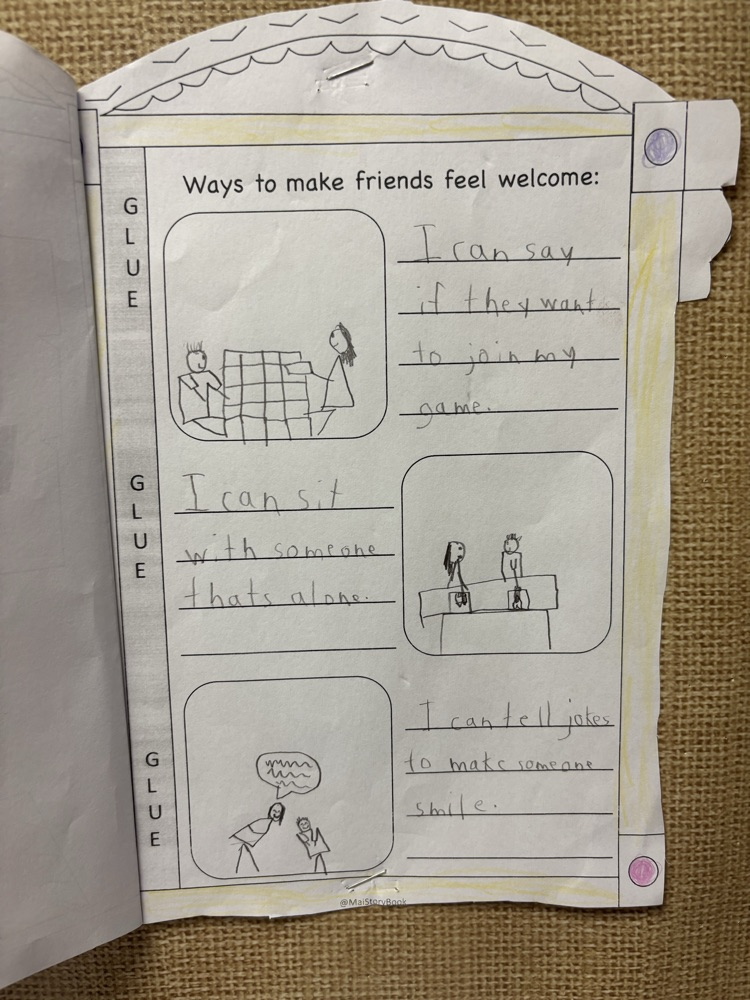 Ways to make friends feel welcome:
G
L
U
E
I can say
if they want
to join my
game.
G
L
U
E
I can sit
with someone
thats alone.
G
L
U
E
I can tell jokes
to make someone
smile.
@MaiStoryBook